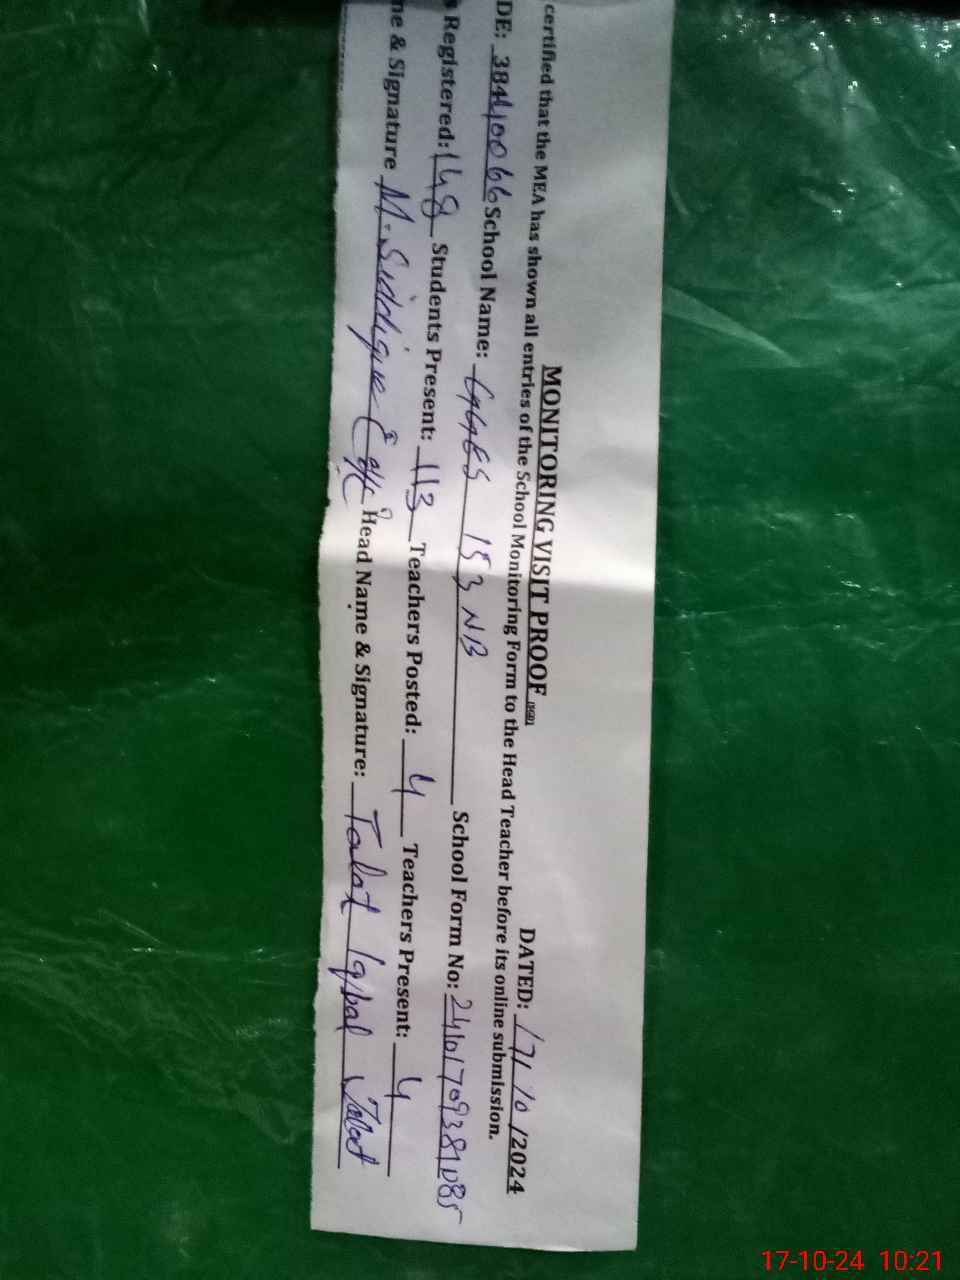 MONITORING VISIT PROOF (SGD)
DATED: 17/10/2024
certified that the MEA has shown all entries of the School Monitoring Form to the Head Teacher before its online submission.
DE: 38440066 School Name: GGES 153 NB School Form No: 24101709381085
s Registered: 148 Students Present: 113 Teachers Posted: 4 Teachers Present: 4
me & Signature M. Siddique Head Name & Signature: Talat Iqbal Talat
17-10-24 10:21